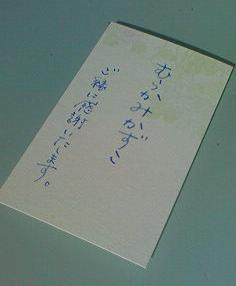 むらかみかずこ
ご縁に感謝いたします。